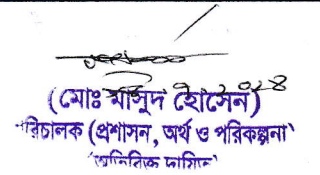 (মোঃ মাসুদ হোসেন)
পরিচালক (প্রশাসন, অর্থ ও পরিকল্পনা)
(অতিরিক্ত দায়িত্ব)